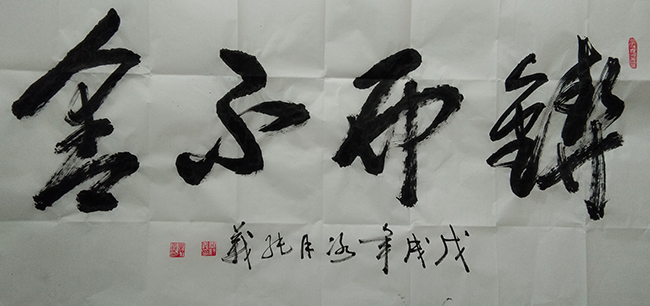 鍥而不舍
戊戌年冬月義